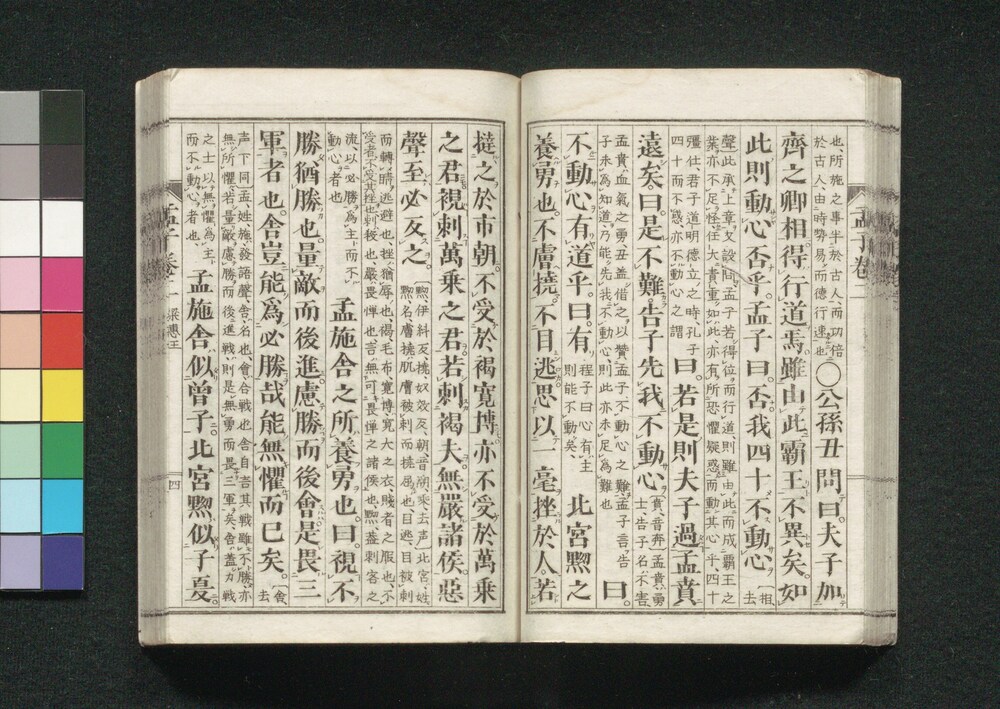 也、所施之事半於古人、而功倍
於古人、由時勢易而德行速也
○公孫丑問曰。夫子加
齊之卿相。得行道焉。雖由此霸王不異矣。如
此則動心否乎。孟子曰。否。我四十不動心。
相、去
聲此承上章、又設問孟子、若得位而行道、則雖由此而成霸王之
業、亦不足怪、任大責重如此、亦有所恐懼疑惑而動其心乎、四十
彊仕、君子道明德立之時、孔子
四十而不惑、亦不動心之謂
曰。若是則夫子過孟賁
遠矣。曰。是不難。告子先我不動心。
賁、音奔、孟賁勇
士、告子名不害
孟賁血氣之勇、丑蓋借之以贊孟子不動心之難、孟子言告
子未為知道、乃能先我不動心、則此亦未足為難也
曰。
不動心有道乎。曰。有。
程子曰心有主
則能不動矣、
北宮黝之
養勇也。不膚撓。不目逃。思以一毫挫於人。若
撻之於市朝。不受於褐寬博。亦不受於萬乘
之君。視刺萬乘之君。若刺褐夫。無嚴諸侯。惡
聲至。必反之。
黝、伊糾反、撓、奴效反、朝、音潮、乘、去声、北宮、姓
黝、名、膚撓、肌膚被刺而撓屈也、目逃、目被刺
而轉睛逃避也、挫、猶辱也、褐、毛布、寬博、寬大之衣、賤者之服也、不
受者、不受其挫也、刺、殺也、嚴、畏憚也、言無可畏憚之諸侯也、黝、蓋刺客之
流、以必勝為主、而不
動心者也
孟施舍之所養勇也。曰。視不
勝猶勝也。量敵而後進。慮勝而後會。是畏三
軍者也。舍豈能爲必勝哉。能無懼而已矣。
舍、去
声、下同、孟、姓、施、發語聲、舍、名也、會、合戰也、舍自言其戰雖不勝、亦
無所懼、若量敵慮勝而後進戰、則是無勇而畏三軍矣、舍蓋力戰
之士、以無懼為主、
而不動心者也、
孟施舍似曾子。北宮黝似子夏。
孟子卷二
梁惠王
四
孟子卷二